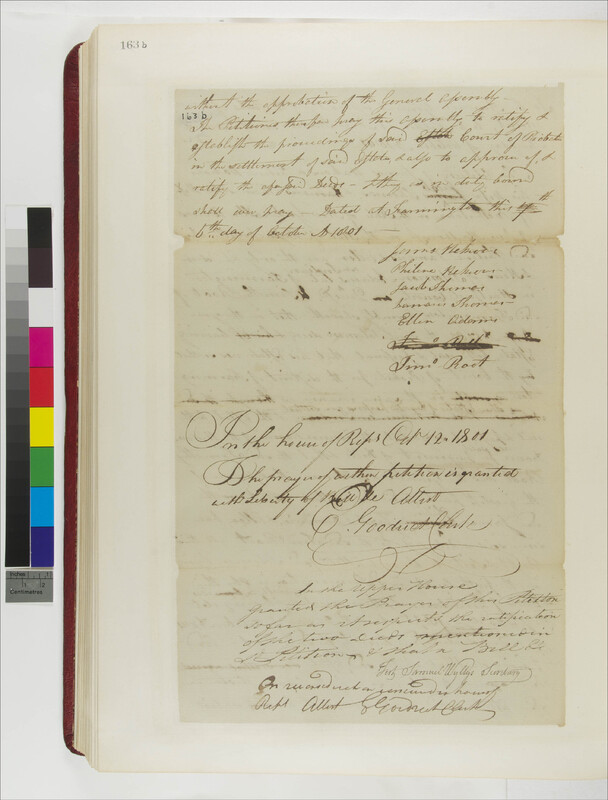 163 b
without the approbation of the General Assembly
163 b
The Petitioners therefore pray this Assembly to ratify &
establish the proceedings of said Court of Probate
in the settlement of said Estate & also to approve of &
ratify the Deeds & they as in duty bound
shall ever pray — Dated at Farmington this
6th day of October AD 1801 —
Jacob Thomas
Thomas
Ellen Adams
Timo Root
Timo Root
In the house of Reps Oct 12. 1801
The prayer of within petition is granted
with Liberty of Bill &c Attest
E Goodrich Clerk
In the Upper House
granted the Prayer of this Petition
so far as it respects the ratification
of the two Deeds mentioned in
Petition & that a Bill &c
Test Samuel Wyllys Secretary
On reconsideration concurred in house of
Reps Attest E Goodrich Clerk
Inches 1 2
Centimetres